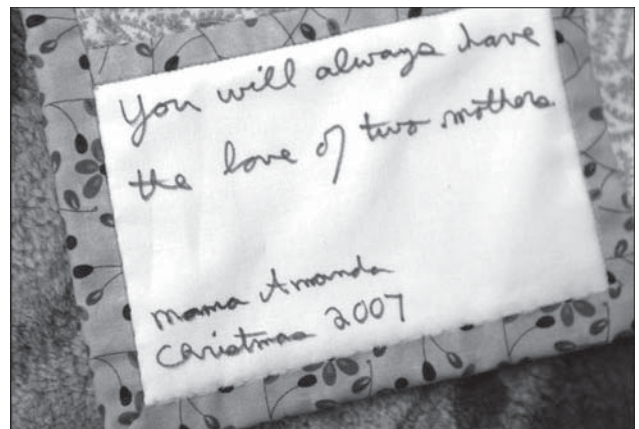 You will always have
the love of two mothers.
Mama Amanda
Christmas 2007